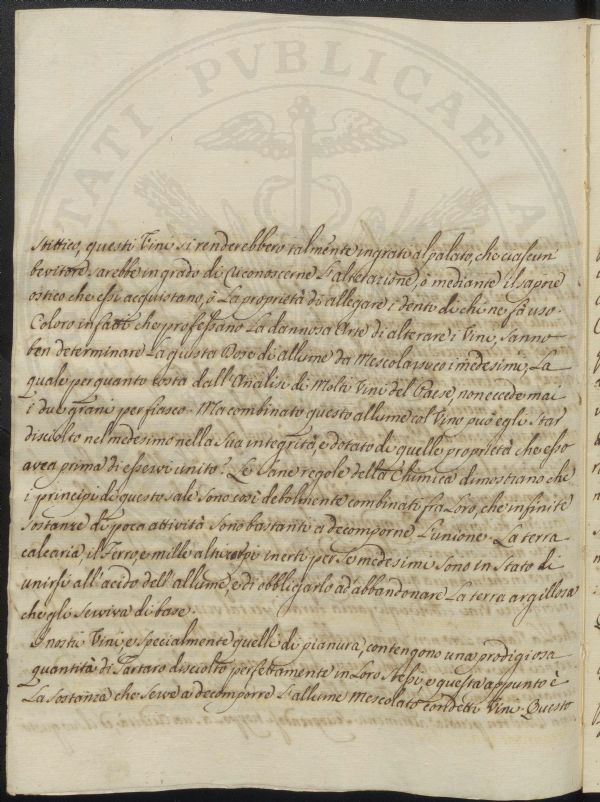 TATI PVBLICAE
stittico, questi Vini si renderebbero talmente ingrate al palato, che ciascun
bevitore sarebbe in grado di riconoscerne l'alterazione, ò mediante il sapore
ostico che essi acquistano, ò La proprietà di allegare i denti di chi ne fà uso.
Coloro infatti che professano La dannosa Arte di alterare i Vini, sanno
ben determinare La giusta Dose di allume da Mescolarsi co' medesimi, La
quale per quanto costa dall'Analisi di Molti Vini del Paese non eccede mai
i due grani per fiasco. Ma combinato questo allume col Vino può egli star
disciolto nel medesimo nella sua integrità, e dotato di quelle proprietà che esso
avea prima di esservi unito? Le sane regole della Chimica dimostrano che
i principi di questo sale sono così debolmente combinati fra Loro, che infinite
sostanze di poca attività sono bastanti a decomporne l'unione. La terra
calcaria, il Ferro, e mille altri corpi inerti per se medesimi sono in stato di
unirsi all'acido dell'allume, e di obbligarlo ad abbandonare La terra argillosa
che gli serviva di base.
I nostri Vini, e specialmente quelli di pianura, contengono una prodigiosa
quantità di Tartaro disciolto perfettamente in Loro stessi, e questa appunto è
La sostanza che serve a decomporre l'allume Mescolato con detti Vini. Questo